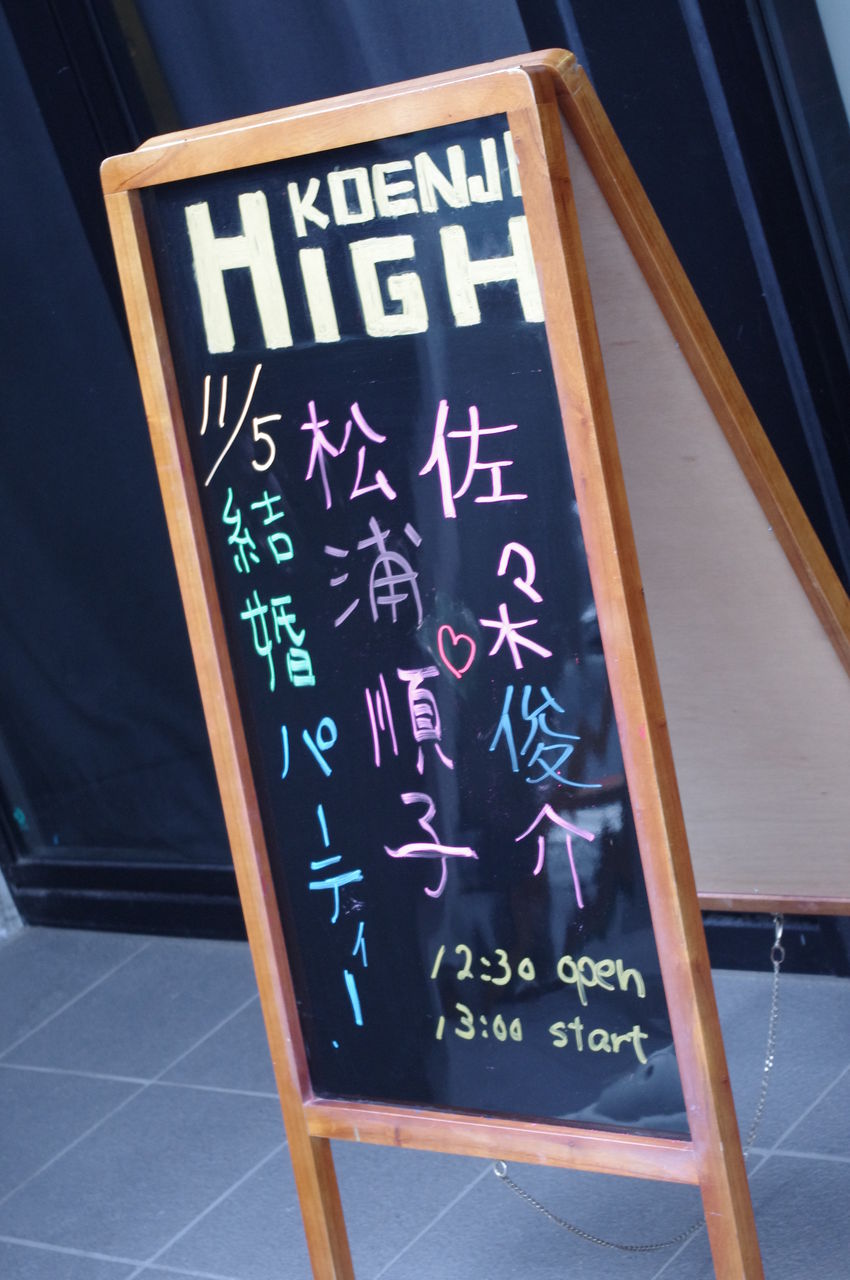 KOENJI
HIGH
11/5
佐々木俊介
♡
松浦順子
結婚パーティー
12:30 open
13:00 start